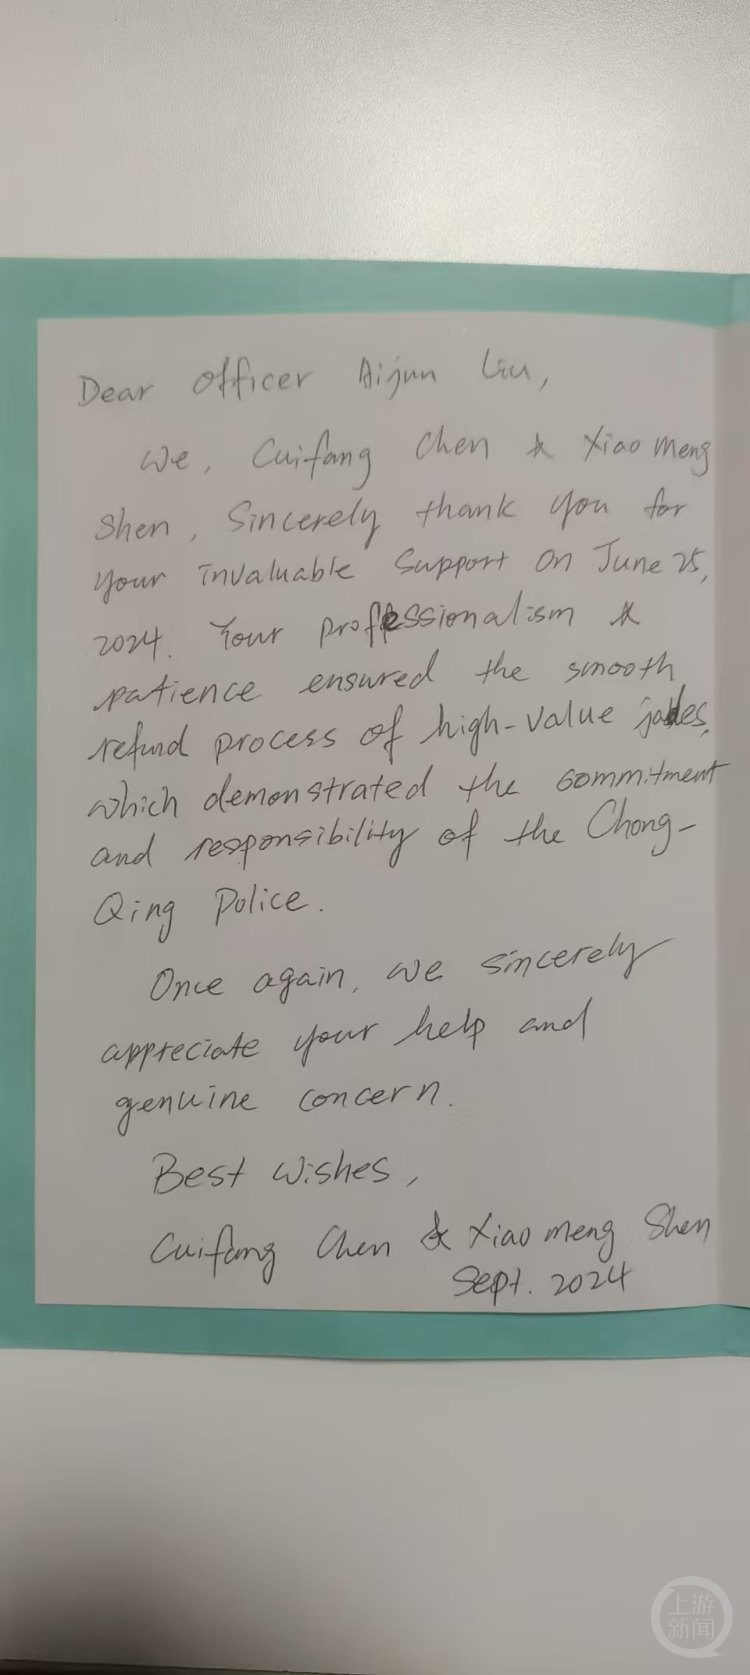 Dear Officer Aijun Liu,
We, Cuifang Chen & Xiaomeng
Shen, Sincerely thank you for
your invaluable support on June 25,
2024. Your professionalism &
patience ensured the smooth
refund process of high-value jades,
which demonstrated the commitment
and responsibility of the Chong-
Qing Police.
Once again, we sincerely
appreciate your help and
genuine concern.
Best Wishes,
Cuifang Chen & Xiaomeng Shen
Sept. 2024
上游
新闻